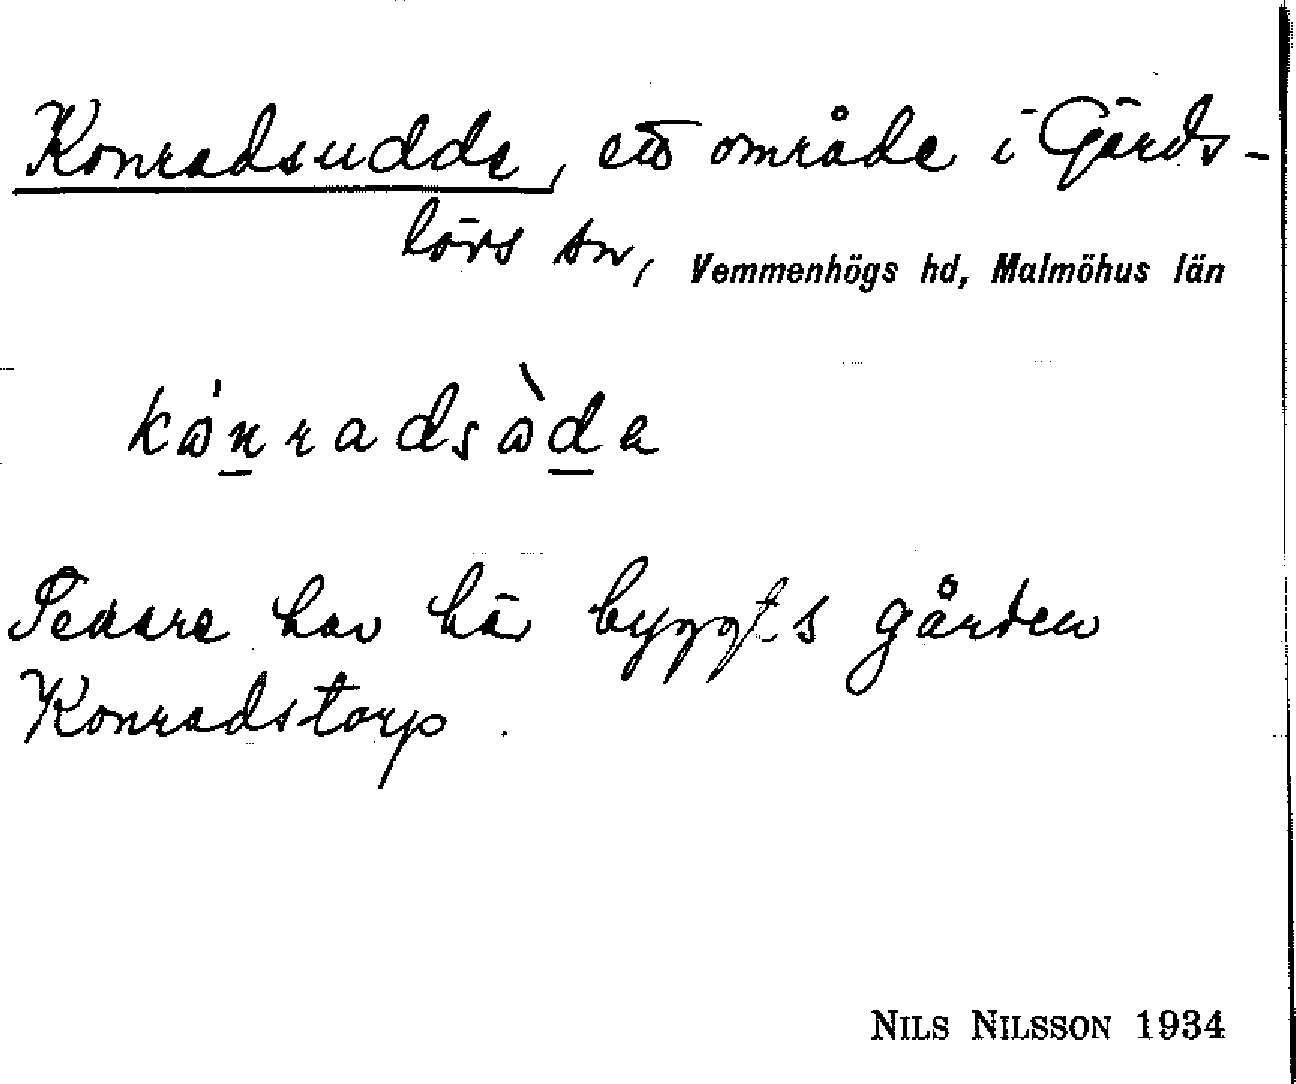 Konradsudde, ett område i Gärds-
lövs sn, Vemmenhögs hd, Malmöhus län
kånradsåda
Senare har här byggts gården
Konradstorp.
NILS NILSSON 1934